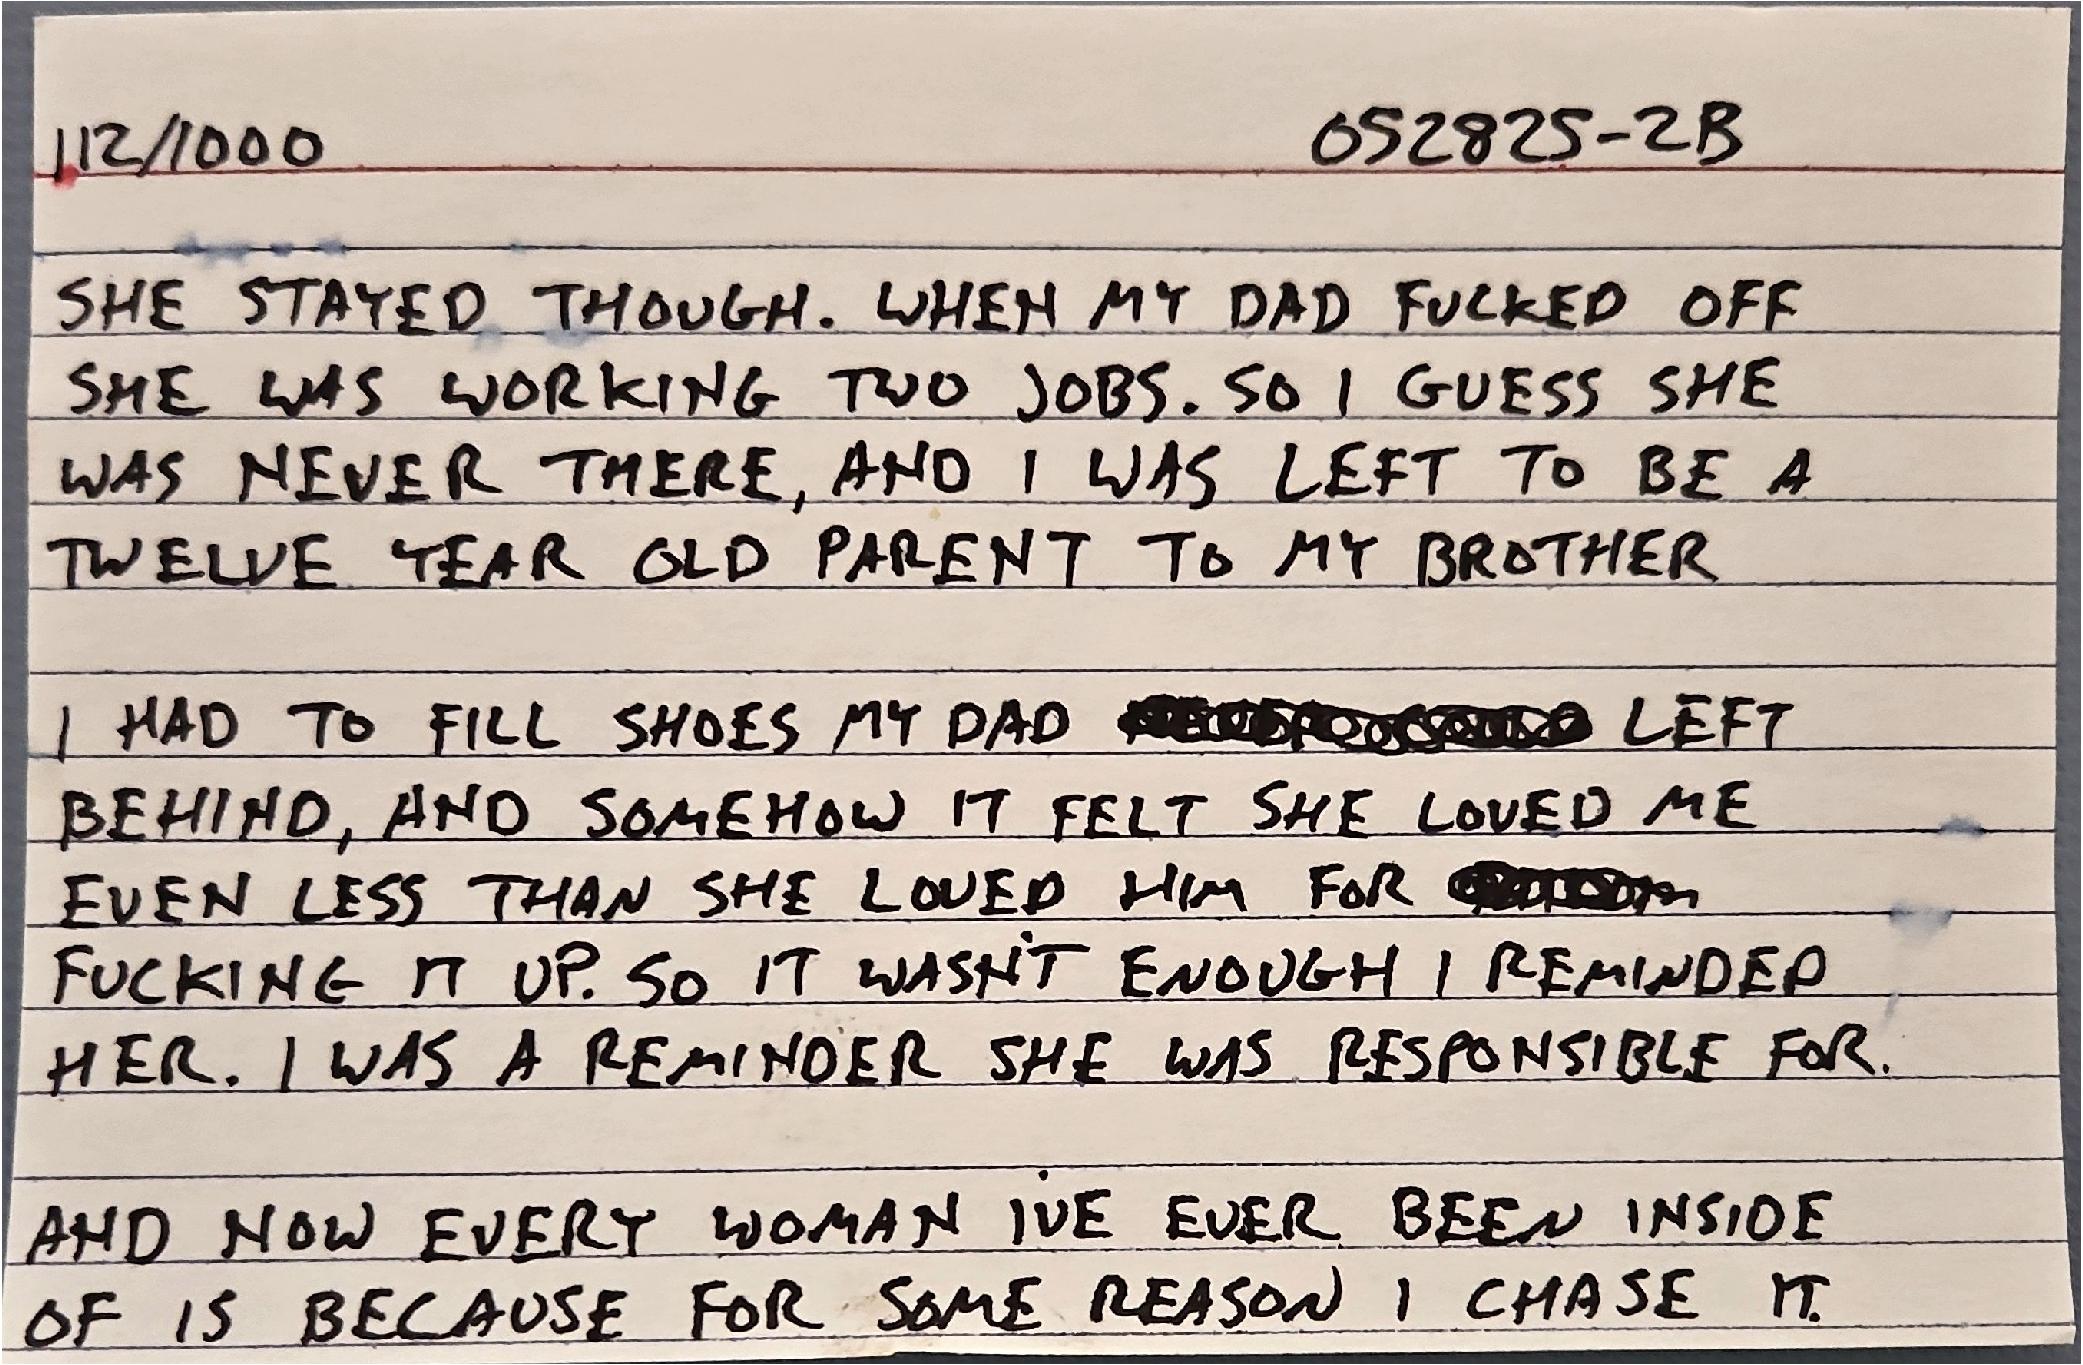 112/1000 052825-2B
SHE STAYED THOUGH. WHEN MY DAD FUCKED OFF
SHE WAS WORKING TWO JOBS. SO I GUESS SHE
WAS NEVER THERE, AND I WAS LEFT TO BE A
TWELVE YEAR OLD PARENT TO MY BROTHER
I HAD TO FILL SHOES MY DAD LEFT
BEHIND, AND SOMEHOW IT FELT SHE LOVED ME
EVEN LESS THAN SHE LOVED HIM FOR
FUCKING IT UP. SO IT WASN'T ENOUGH I REMINDED
HER. I WAS A REMINDER SHE WAS RESPONSIBLE FOR.
AND NOW EVERY WOMAN I'VE EVER BEEN INSIDE
OF IS BECAUSE FOR SOME REASON I CHASE IT.